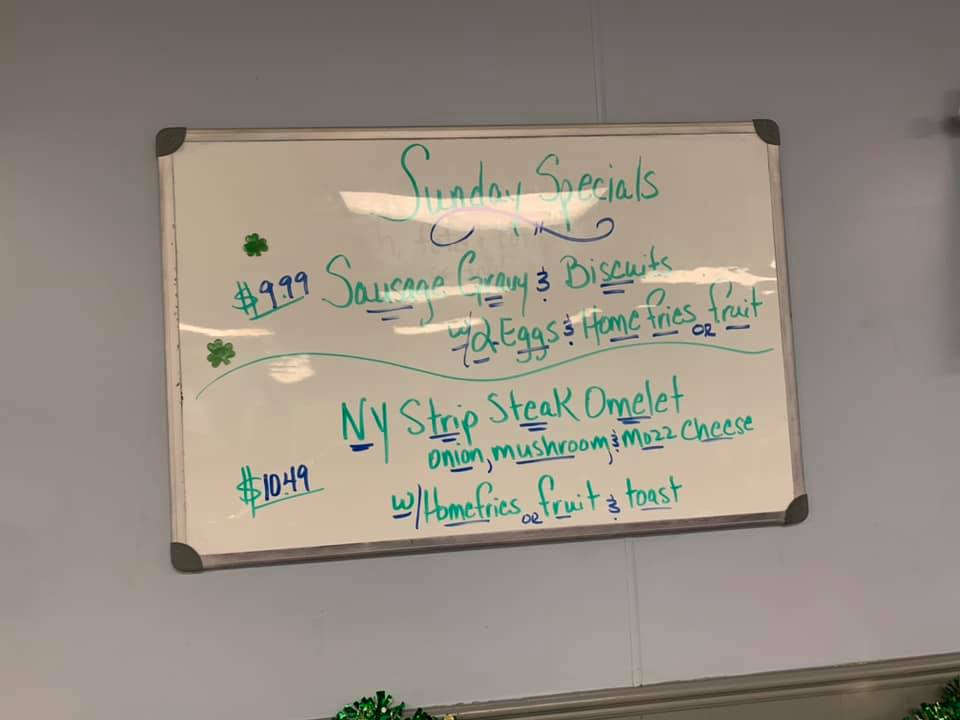 Sunday Specials
$9.99 Sausage Gravy & Biscuits
w/2 Eggs & Home fries OR fruit
NY Strip Steak Omelet
onion, mushroom, & Mozz Cheese
$10.49
w/Homefries OR fruit & toast